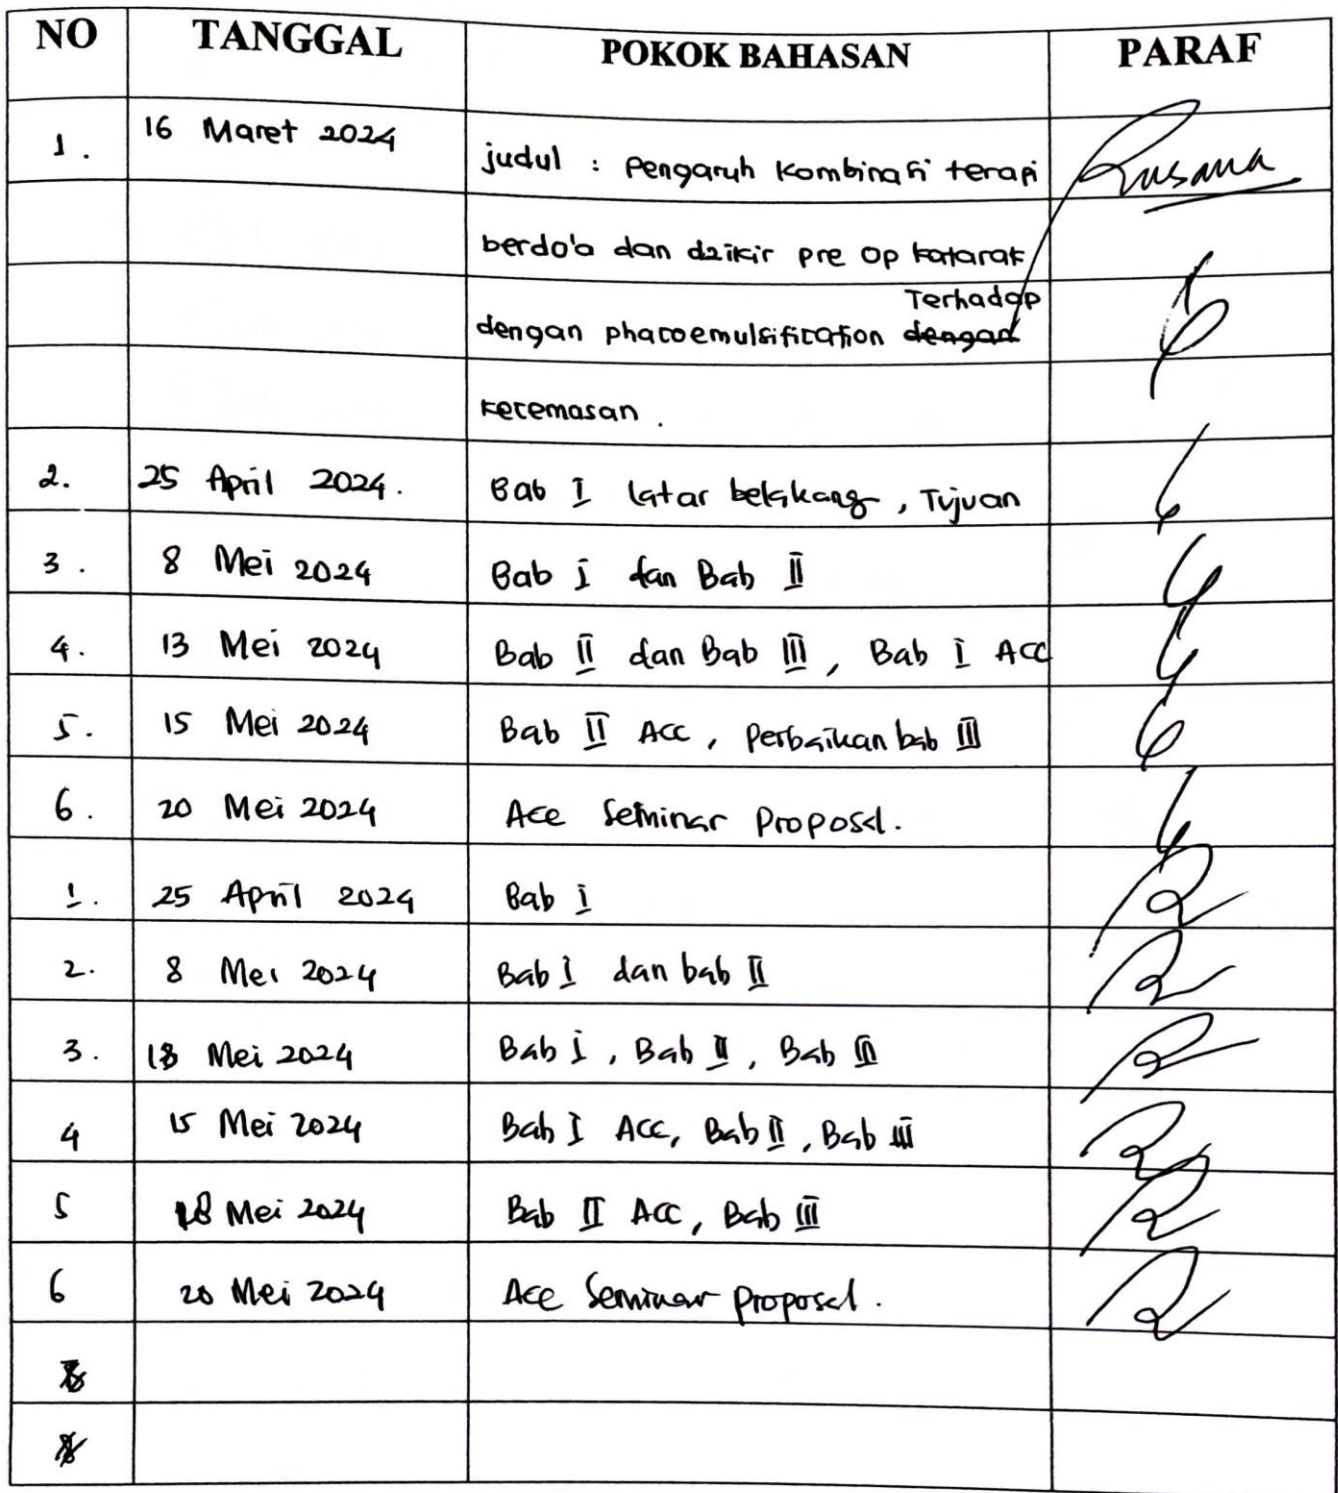 NO TANGGAL POKOK BAHASAN PARAF
1. 16 Maret 2024 judul : Pengaruh Kombinasi terapi Rusana
berdo'a dan dzikir pre op katarak
Terhadap
dengan phacoemulsification dengan
kecemasan.
2. 25 April 2024. Bab I latar belakang, Tujuan
3. 8 Mei 2024 Bab I dan Bab II
4. 13 Mei 2024 Bab II dan Bab III, Bab I Acc
5. 15 Mei 2024 Bab II Acc, Perbaikan bab III
6. 20 Mei 2024 Acc Seminar Proposal.
1. 25 April 2024 Bab I
2. 8 Mei 2024 Bab I dan bab II
3. Mei 2024 Bab I, Bab II, Bab III
4 15 Mei 2024 Bab I Acc, Bab II, Bab III
5 18 Mei 2024 Bab II Acc, Bab III
6 20 Mei 2024 Acc Seminar proposal.